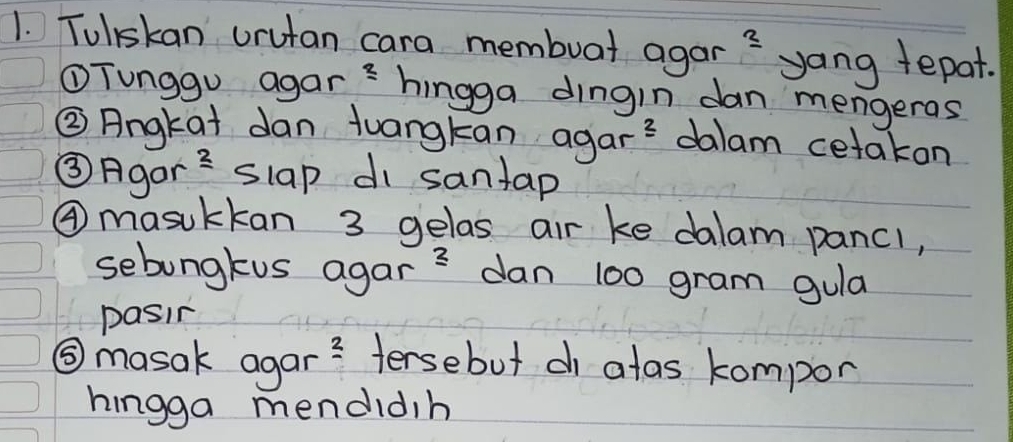 1. Tuliskan urutan cara membuat agar² yang tepat.
① Tunggu agar² hingga dingin dan mengeras
② Angkat dan tuangkan agar² dalam cetakan
③ Agar² siap di santap
④ masukkan 3 gelas air ke dalam panci,
sebungkus agar² dan 100 gram gula
pasir
⑤ masak agar² tersebut di atas kompor
hingga mendidih